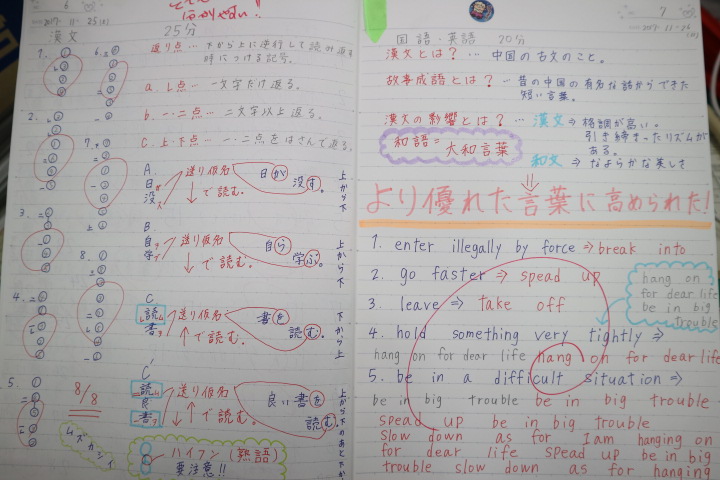 6
2017. 11. 25 (土)
はかりやすい!!
漢文
25分
送り点… 下から上に逆行して読み返す
時につける記号。
a. レ点… 一文字だけ返る。
b. 一・二点… 二文字以上返る。
C. 上・下点… 一・二点をはさんで返る。
1.
2.
3.
4.
5.
6.
7.
8.
A.
日
没ス
送り仮名
↓で読む。
日が
没す。
上から下
B
自ラ
学ブ
送り仮名
↓で読む。
自ら
学ぶ。
上から下
C
読ム
書ヲ
送り仮名
↑で読む。
書を
読む。
下から上
C'
読ム
良イ
書ヲ
送り仮名
↓↑で読む。
良い書を
読む。
上から下のあと下から
8/8
ムズカシイ
ハイフン (熟語)
要注意!!
7
2017. 11. 26
国語・英語 20分
漢文とは? … 中国の古文のこと。
故事成語とは? … 昔の中国の有名な話からできた
短い言葉。
漢文の影響とは? … 漢文 ⇒ 格調が高い。
引き締まったリズムが
ある。
和語=大和言葉
和文 ⇒ なよらかな美しさ
⇓
より優れた言葉に高められた!
1. enter illegally by force ⇒ break into
2. go faster ⇒ spead up
3. leave ⇒ take off
hang on
for dear life
be in big
trouble
4. hold something very tightly ⇒
hang on for dear life hang on for dear life
5. be in a difficult situation ⇒
be in big trouble be in big trouble
spead up be in big trouble
slow down as for I am hanging on
for dear life spead up be in big
trouble slow down as for hanging